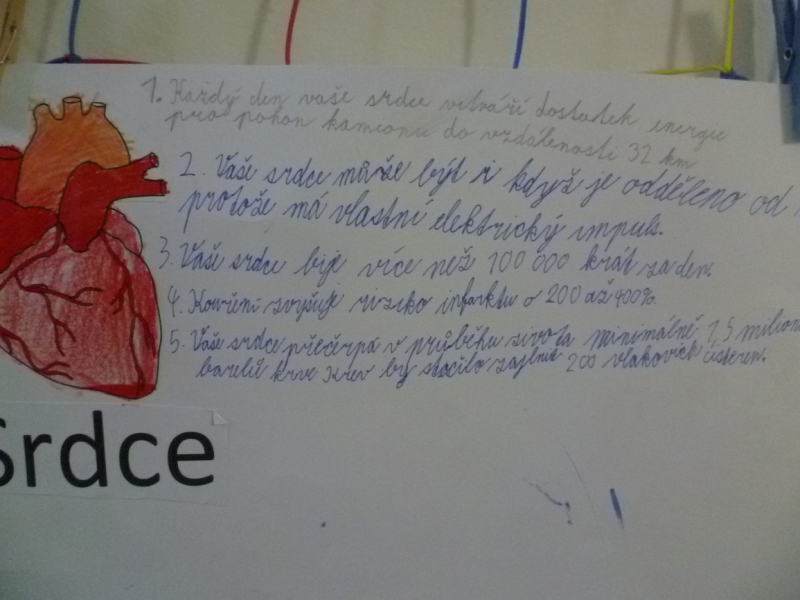 1. Každý den vaše srdce vitváří dostatek energie
pro pohon kamionu do vzdálenosti 32 km
2. Vaše srdce může být i když je odděleno od
protože má vlastní elektrický impuls.
3. Vaše srdce bije více než 100 000 krát za den.
4. Kouření zvyšuje riziko infarktu o 200 až 400%.
5. Vaše srdce přečerpá v průběhu života minimálně 1,5 milionu
barelů krve Krev by stačilo zaplnit 200 vlakových cisteren.
Srdce